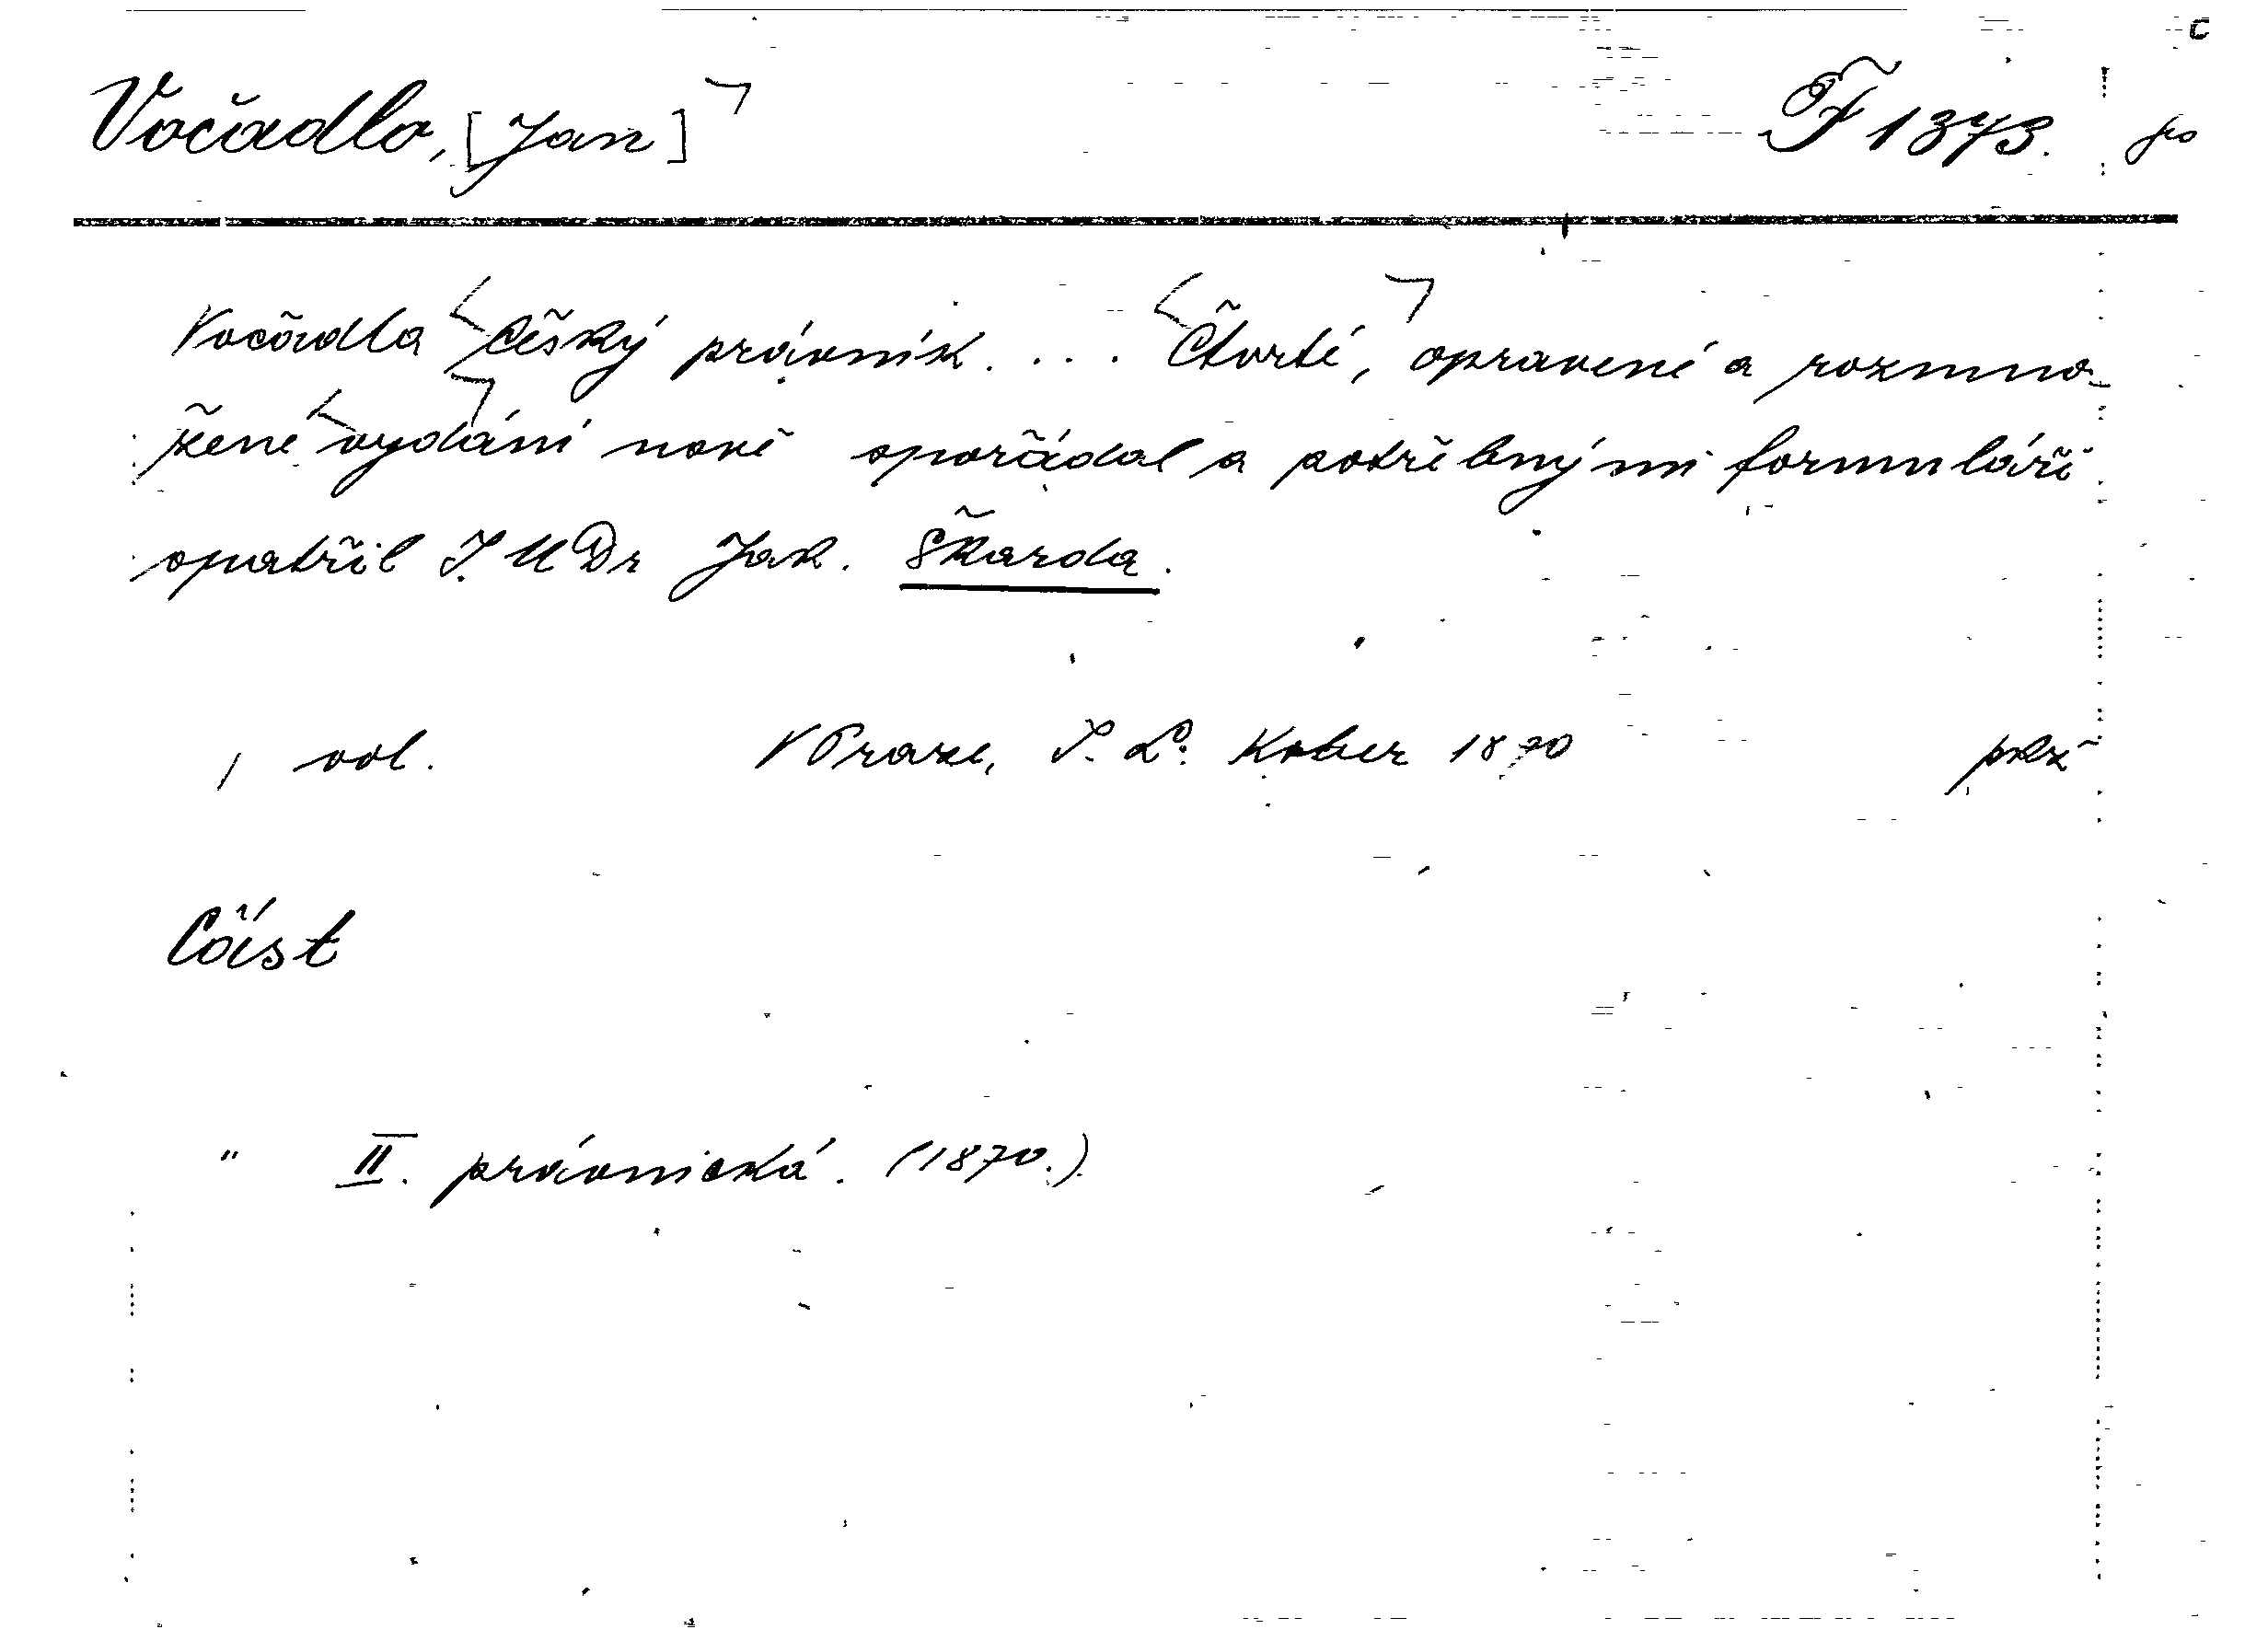 c
Vočadlo, [Jan] F 1373.
Vočadla Český právník. ... Čtvrté, opravené a rozmno-
žené vydání nově spořádal a potřebnými formuláři
opatřil J. U Dr Jak. Škarda.
1 vol. V Praze, I. L. Kober 1870
Část
" II. právnická. (1870.)